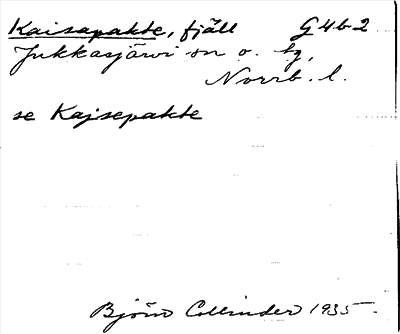 Kaisapakte, fjäll G4b2
Jukkasjärvi sn o. tg,
Norrb. l.
se Kajsepakte
Björn Collinder 1935.